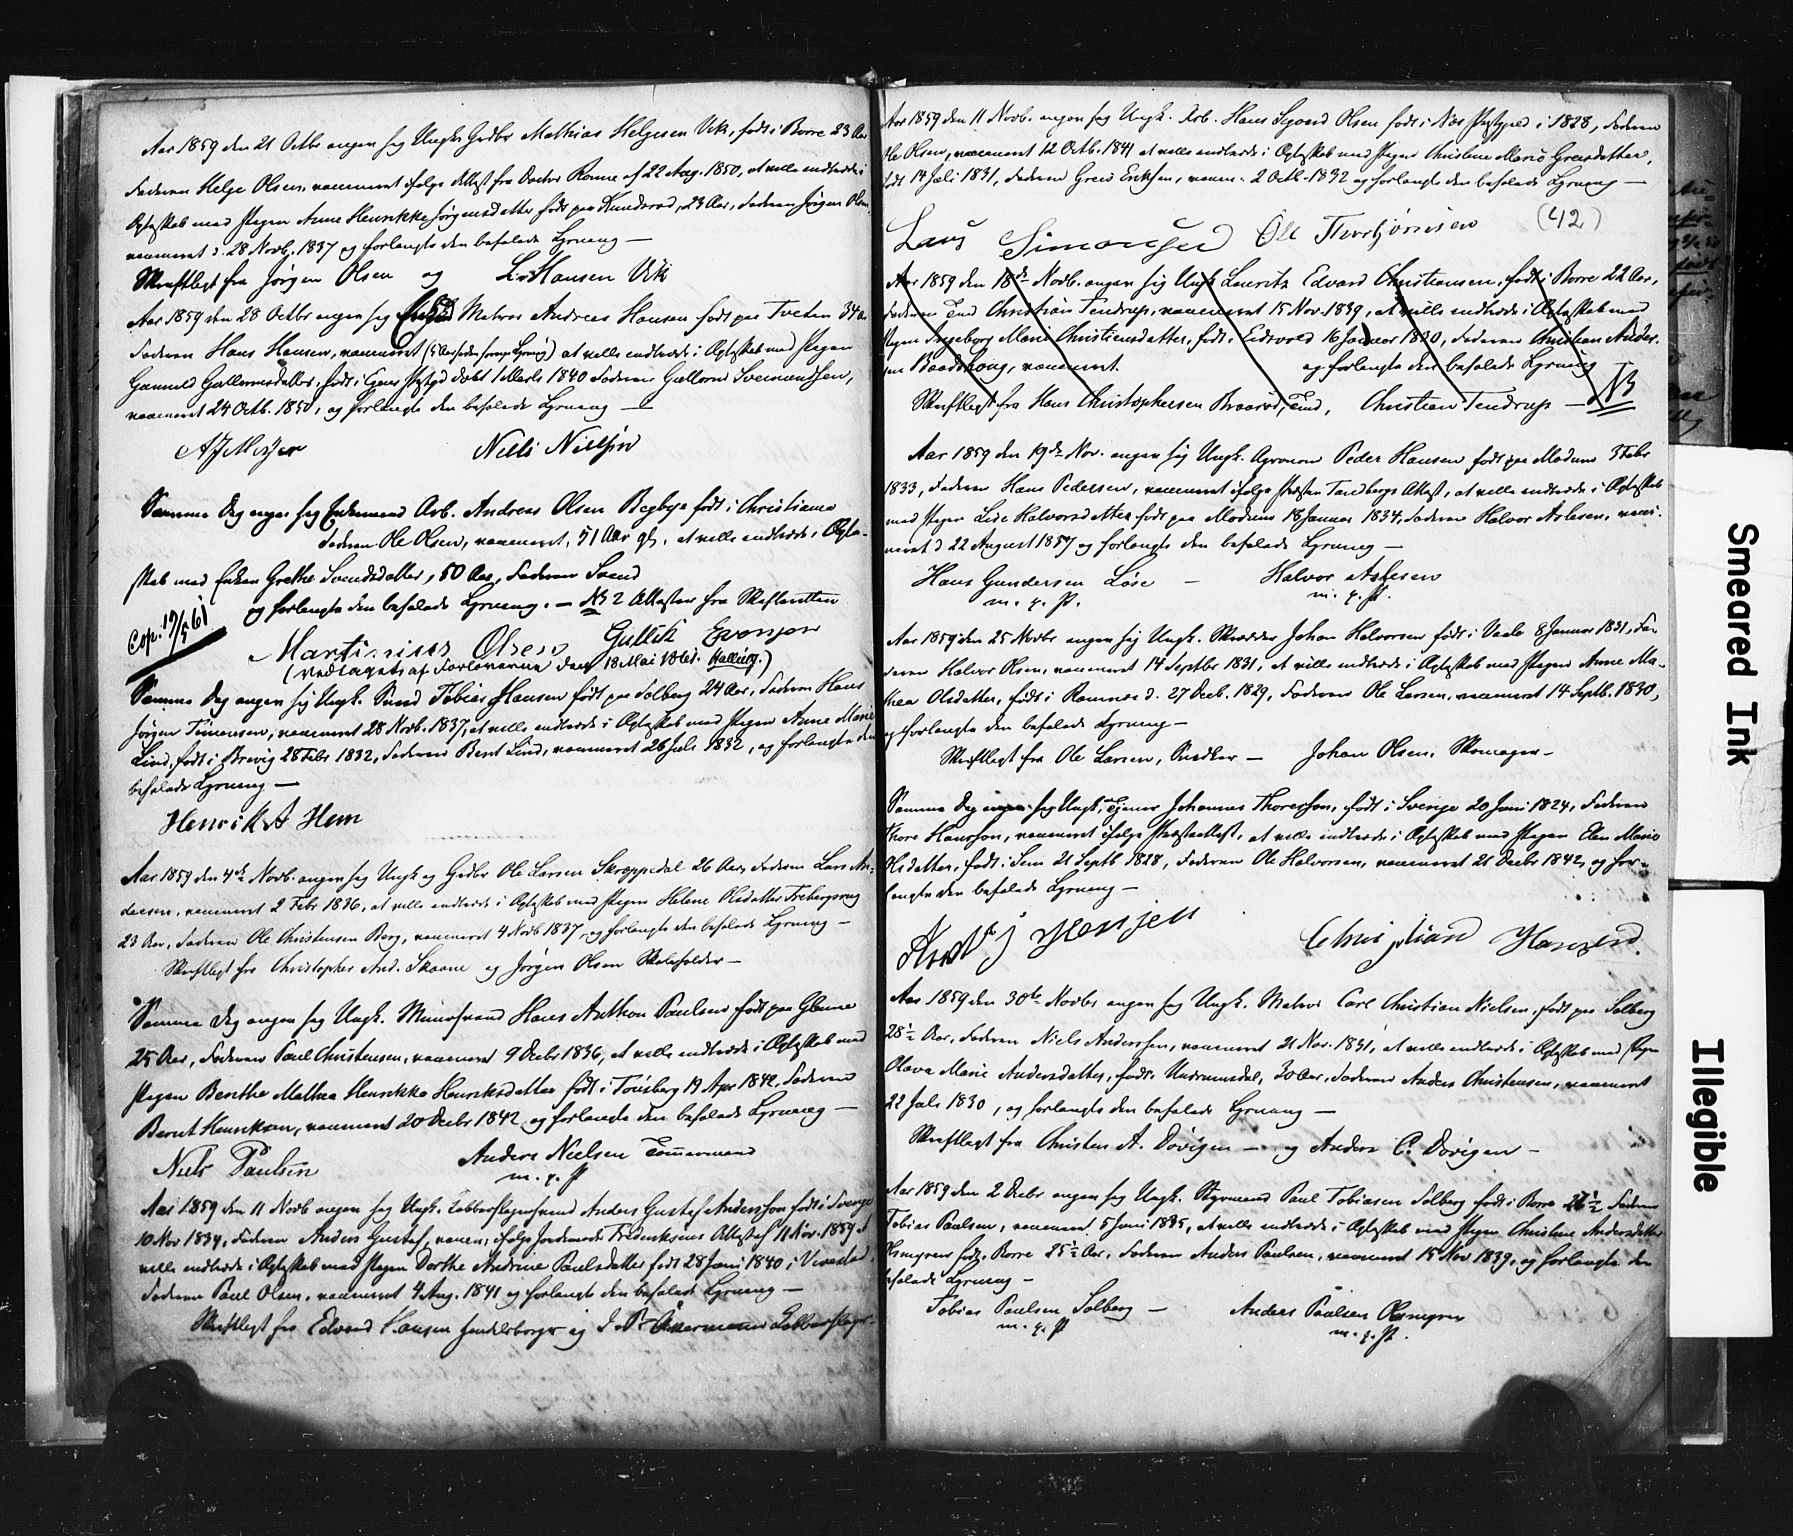 Aar 1859 den 21 Octbr angav sig Ungk. Gedbr Mathias Helgesen Vik, født i Borre 23 Aar
Faderen Helge Olsen, vaccineret ifølge Attest fra Doctor Rønne af 22 Aug. 1850, at ville indtræde i
Ægteskab med Pigen Anne Henrikke Jørgensdatter født paa Kundsrød, 23 Aar, Faderen Jørgen Olsen
vaccineret d. 28 Novb. 1837 og forlangte den befalede Lysning —
Skriftligt fra Jørgen Olsen og L. Hansen Vik
Aar 1859 den 28 Octbr angav sig Matros Andreas Hansen født paa Tveten 34 Aar
Faderen Hans Hansen, vaccineret at ville indtræde i Ægteskab med Pigen
Gunnild Gullormsdatter, født i døbt 1 Marts 1840 Faderen Gullorm
vaccineret 24 Octb. 1850, og forlangte den befalede Lysning —
A J Meyer Niels Nielsen
Samme Dag angav sig Enkemand Arb. Andreas Olsen Bogbye født i Christiania
Faderen Ole Olsen, vaccineret, 51 Aar gl., at ville indtræde i Ægte-
skab med Enken Grethe Svendsdatter, 50 Aar, Faderen Svend
og forlangte den befalede Lysning. — NB 2 Attester fra Skifteretten
Cop. 19/5 61
Martinius Olsen Gullik Evensen
(vedtaget af Forloverne den 18 Mai 1861. )
Samme Dag angav sig Ungk. Tobias Hansen født paa Solberg 24 Aar, Faderen Hans
Jørgen Simensen, vaccineret 28 Novb. 1837, at ville indtræde i Ægteskab med Pigen Anne Marie
Lind, født i Brevig 28 Febr 1832, Faderen Bent Lind, vaccineret 26 Juli 1832, og forlangte den
befalede Lysning —
Henrik A Hem
Aar 1859 den 4de Novb. angav sig Ungk og Gedbr Ole Larsen Skroppedal 26 Aar, Faderen Lars An-
dersen, vaccineret 2 Febr 1836, at ville indtræde i Ægteskab med Pigen Helene Olsdatter
23 Aar, Faderen Ole Christensen Berg, vaccineret 4 Novb 1837, og forlangte den befalede Lysning —
Skriftligt fra Christopher And. Skaane og Jørgen Olsen Skoleholder —
Samme Dag angav sig Ungk. Minørsvend Hans Anthon Paulsen født paa Glenne
25 Aar, Faderen Paul Christensen, vaccineret 9 Decbr 1836, at ville indtræde i Ægteskab med
Pigen Benthe Mathea Henrikke Henriksdatter født i Tønsberg 19 Apr 1842, Faderen
Bernt Henriksen, vaccineret 20 Decbr 1842, og forlangte den befalede Lysning —
Niels Paulsen Anders Nielsen Tømmermand
m. p. P
Aar 1859 den 11 Novb angav sig Ungk. Kobberslagersvend Anders Gustaf Andersson født i Sverige
10 Nov 1834, Faderen Anders Gustaf, vaccin. ifølge Jordemoder Fredriksens Attest af 11 Nov. 1859 at
ville indtræde i Ægteskab med Pigen Dorthe Andrine Paulsdatter født 28 Juni 1840 i Vivestad,
Faderen Paul Olsen, vaccineret 4 Aug. 1841 og forlangte den befalede Lysning —
Skriftligt fra Edvard Hansen Handelsborger og Kobberslager
Aar 1859 den 11 Novb. angav sig Ungk. Arb. Hans Sigvard Olsen født i Næs Prstgjeld i 1828, Faderen
Ole Olsen, vaccineret 12 Octb. 1841 at ville indtræde i Ægteskab med Pigen Christine Marie
født 14 Juli 1831, Faderen Eriksen, vaccin. 2 Octb. 1832 og forlangte den befalede Lysning —
Lars Simonsen Ole Thorbjørnsen (42)
Aar 1859 den 18de Novb. angav sig Ungk Lauritz Edvard Christiansen, født i Borre 22 Aar,
Faderen Christian Tendrup, vaccineret 15 Nov. 1839, at ville indtræde i Ægteskab med
Pigen Ingeborg Marie Christiansdatter, født i Eidsvold 16 Januar 1830, Faderen Christian Ander-
sen vaccineret. og forlangte den befalede Lysning
Skriftligt fra Hans Christophersen Christian Tendrup — NB
Aar 1859 den 19de Nov. angav sig Ungk. Agronom Peder Hansen født paa Modum 3 Febr
1833, Faderen Hans Pedersen, vaccineret ifølge Præsten Tandbergs Attest, at ville indtræde i Ægteskab
med Pigen Lise Halvorsdatter født paa Modum 18 Januar 1834, Faderen Halvor Aslesen, vacci-
neret d 22 August 1857 og forlangte den befalede Lysning —
Hans Gundersen Løse — Halvor Aslesen
m. p. P. m. p. P.
Aar 1859 den 25 Novbr angav sig Ungk. Skrædder Johan Halvorsen født i Vaale 8 Januar 1831, Fa-
deren Halvor Olsen, vaccineret 14 Septbr 1831, at ville indtræde i Ægteskab med Pigen Anne Ma-
thea Olsdatter, født i Ramnes d. 27 Decb. 1829, Faderen Ole Larsen, vaccineret 14 Septb. 1830,
og forlangte den befalede Lysning —
Skriftligt fra Ole Larsen, Snedker — Johan Olsen, Skomager —
Samme Dag angav sig Ungk. Tjener Johannes Thoresson, født i Sverige 20 Juni 1824, Faderen
Thore Hansson, vaccineret ifølge Præsteattest, at ville indtræde i Ægteskab med Pigen Elen Marie
Olsdatter, født i Sem 21 Septb 1828, Faderen Ole Halvorsen, vaccineret 21 Decbr 1842, og for-
langte den befalede Lysning —
Christian Hansen.
Aar 1859 den 30te Novbr angav sig Ungk. Matros Carl Christian Nielsen, født paa Solberg
28½ Aar, Faderen Niels Anderssen, vaccineret 21 Nov. 1831, at ville indtræde i Ægteskab med Pigen
Olava Marie Andersdatter, født i Undrumsdal, 30 Aar, Faderen Anders Christensen, vaccineret
22 Juli 1830, og forlangte den befalede Lysning —
Skriftligt fra Christen A. Døvigen — og Anders C. Døvigen —
Aar 1859 den 2 Decbr angav sig Ungk. Styrmand Paul Tobiasen Solberg født i Borre ½ Faderen
Tobias Paulsen, vaccineret 5 Juni 1835, at ville indtræde i Ægteskab med Pigen Christine Andersdatter
født i Borre 25½ Aar, Faderen Anders Paulsen, vaccineret 15 Nov 1839, og forlangte den
befalede Lysning —
Tobias Paulsen Solberg — Anders Paulsen
m. p. P m. p. P.
Smeared Ink
Illegible